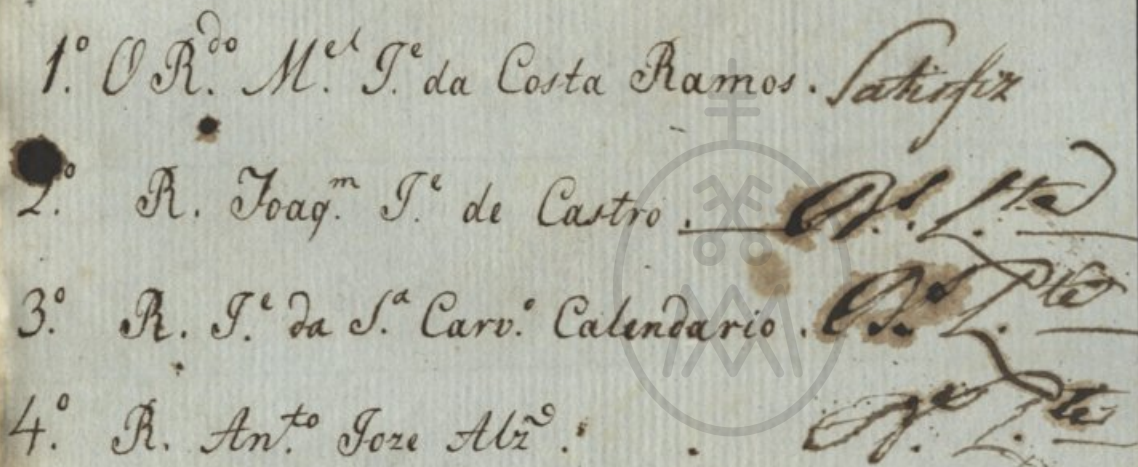 1.º O R.do M.el J.e da Costa Ramos. Satisfiz
2.º R. Joaq.m J.e de Castro.
3.º R. J.e da S.a Carv.o Calendario.
4.º R. An.to Joze Alz